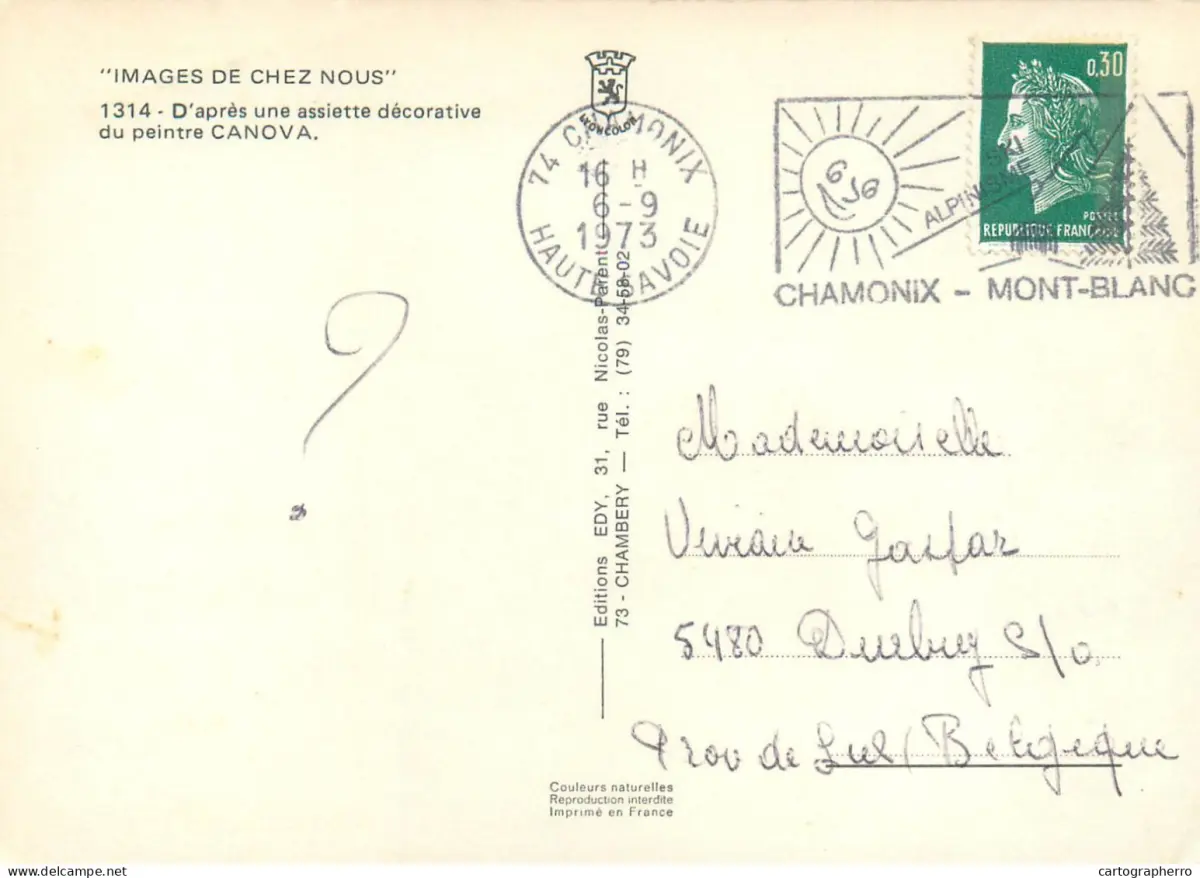 "IMAGES DE CHEZ NOUS"
1314 - D'après une assiette décorative
du peintre CANOVA.
LYONCOLOR
74 CHAMONIX
16 H
6-9
1973
HAUTE SAVOIE
SKI
ALPINISME
CHAMONIX - MONT-BLANC
0,30
POSTES
REPUBLIQUE FRANCAISE
?
Editions EDY, 31, rue Nicolas-Parent
73 - CHAMBERY — Tél. : (79) 34-58-02
Mademoiselle
Gaspar
5480 Durbuy S/o
Prov de Lux/Belgique
Couleurs naturelles
Reproduction interdite
Imprimé en France
Delcampe.net
cartographerro